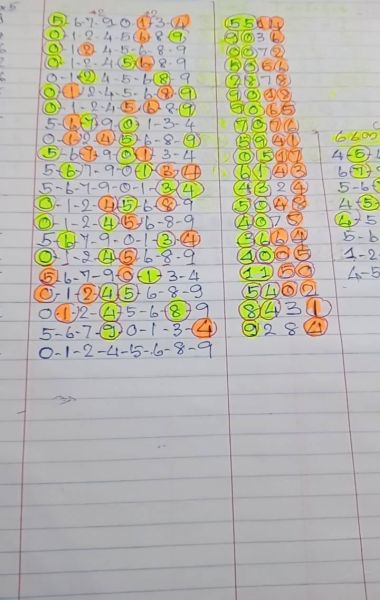 5-6-7-9-0-1-3-4 5514
0-1-2-4-5-6-8-9 9036
0-1-2-4-5-6-8-9 0072
0-1-2-4-5-6-8-9 5056
0-1-2-4-5-6-8-9 2878
0-1-2-4-5-6-8-9
0-1-2-4-5-6-8-9 9065
5-6-7-9-0-1-3-4 7076
0-1-2-4-5-6-8-9 5941
5-6-7-9-0-1-3-4 0517
5-6-7-9-0-1-3-4 6143
5-6-7-9-0-1-3-4 4324
0-1-2-4-5-6-8-9 5048
0-1-2-4-5-6-8-9 4075
5-6-7-9-0-1-3-4 3664
0-1-2-4-5-6-8-9 4005
5-6-7-9-0-1-3-4 1150
0-1-2-4-5-6-8-9 5402
0-1-2-4-5-6-8-9 8431
5-6-7-9-0-1-3-4 9284
0-1-2-4-5-6-8-9